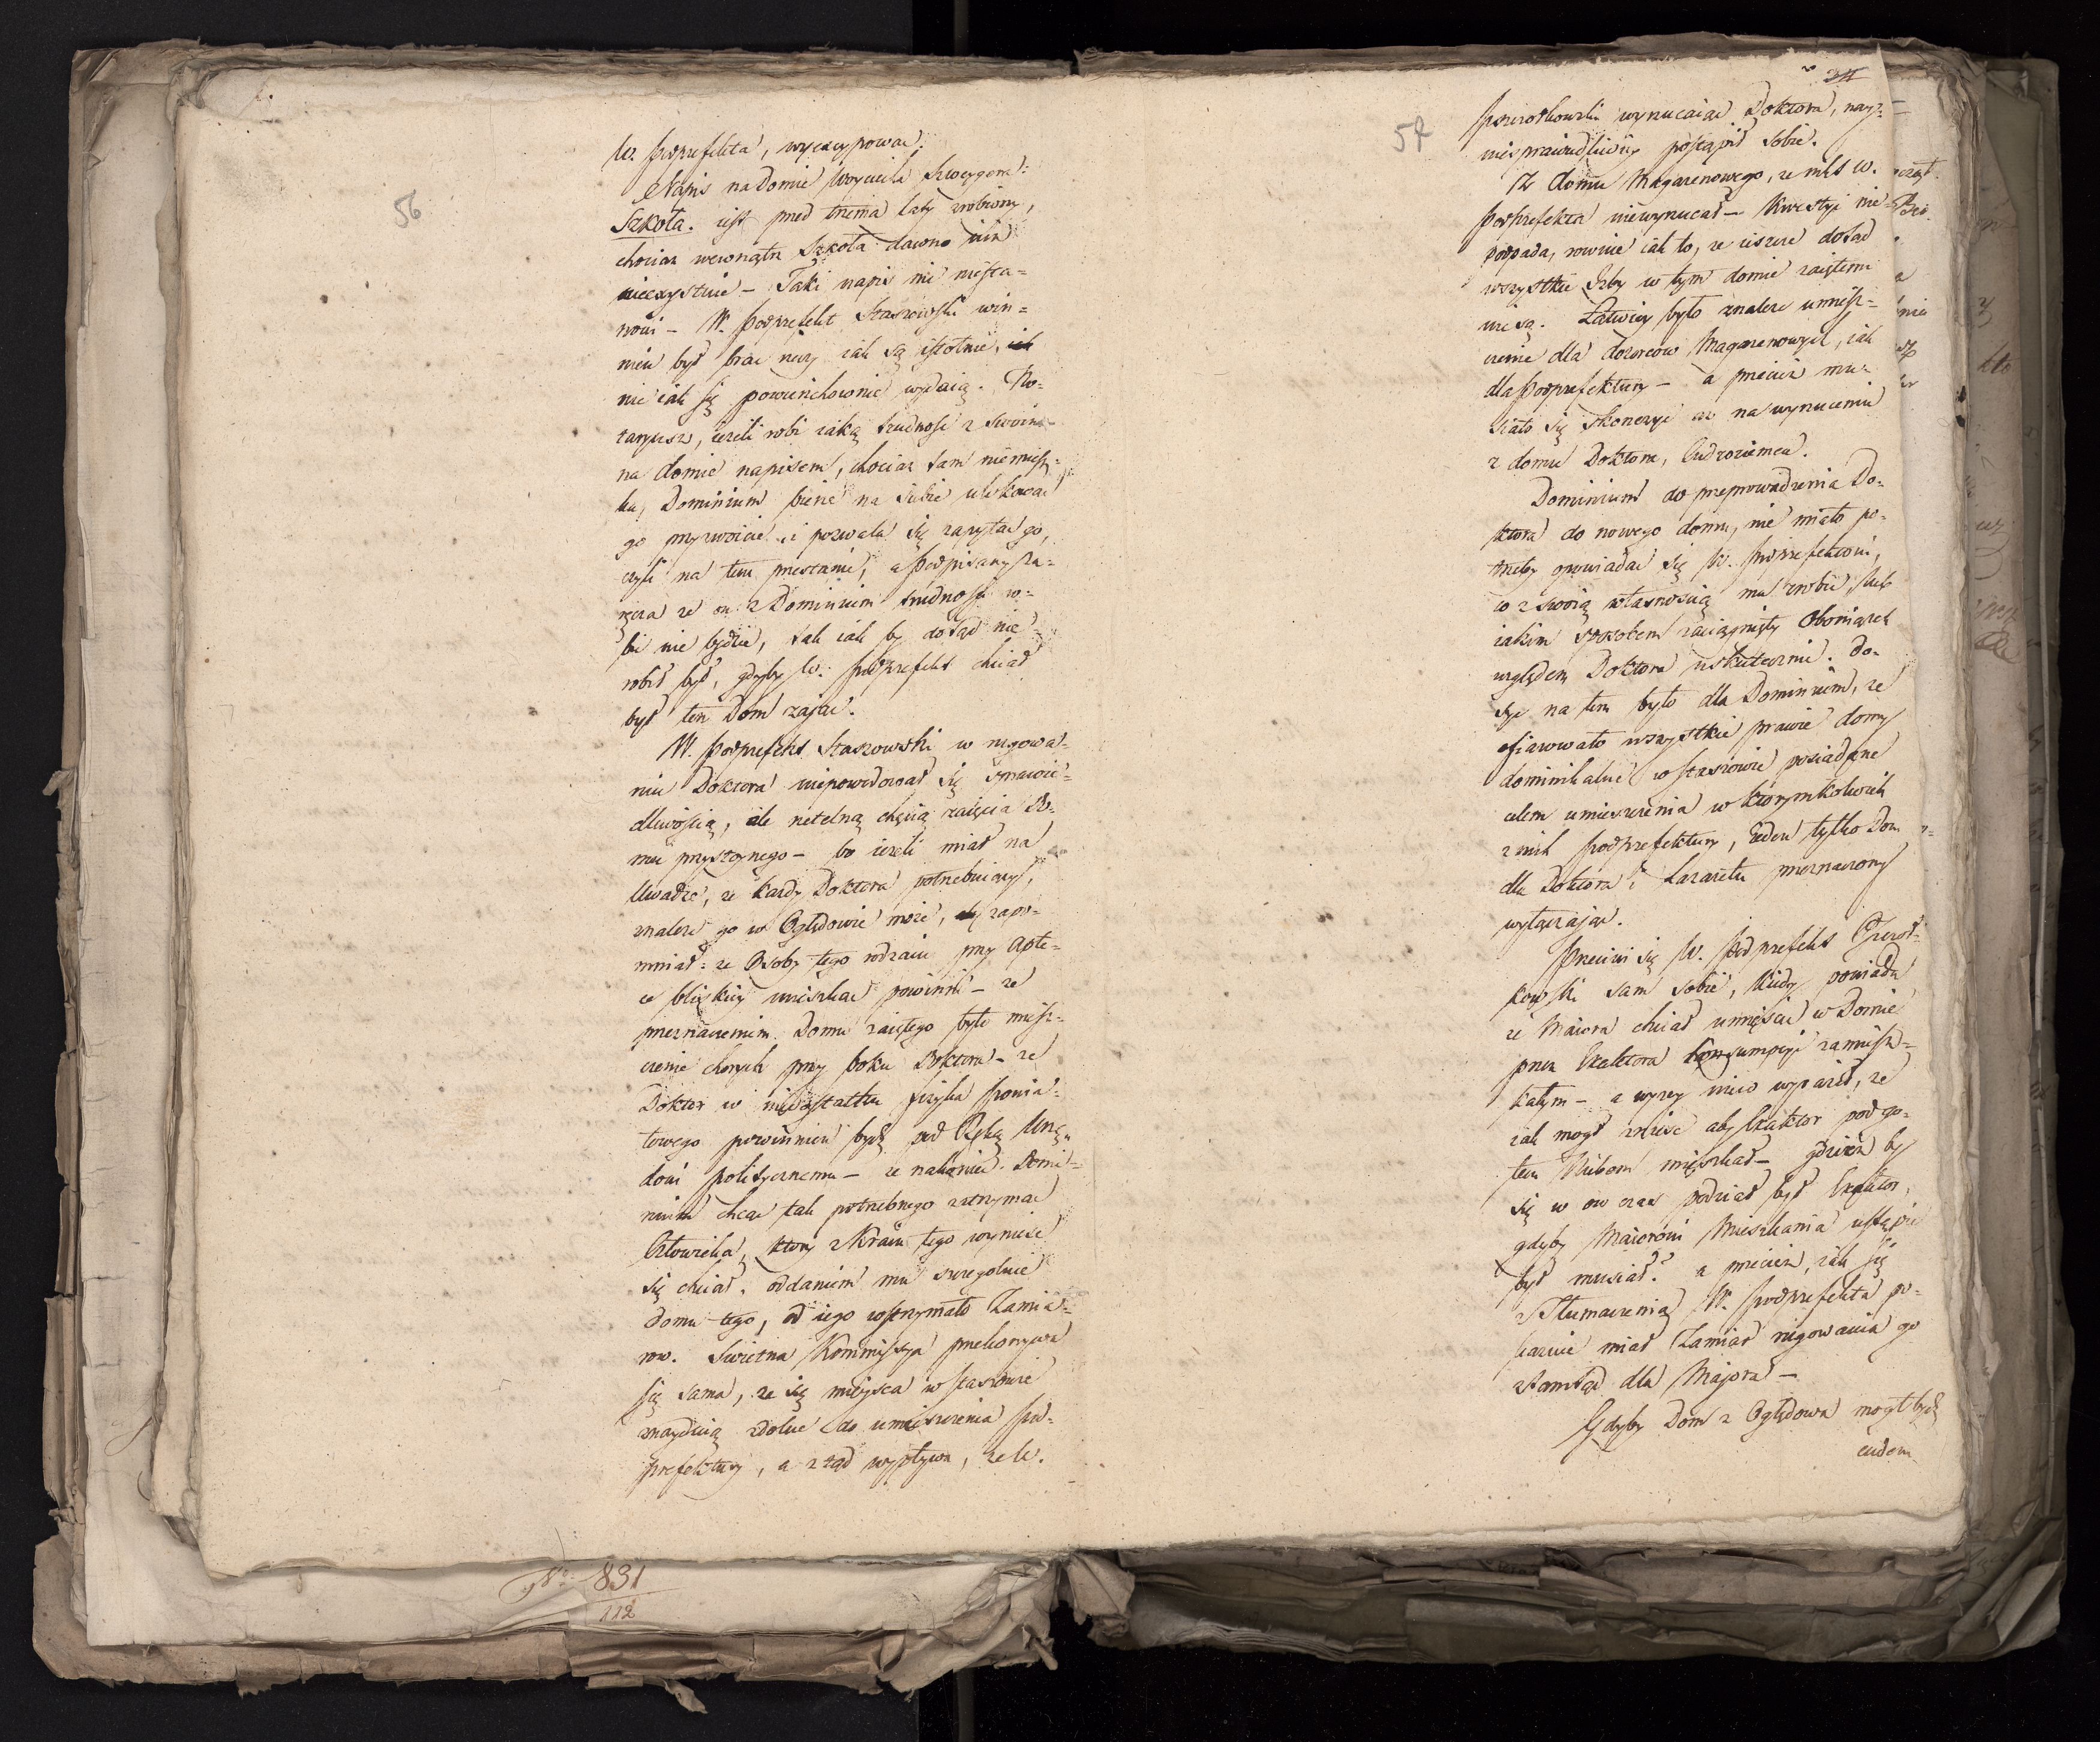 56
W. podprefekta, wyexcypować.
Napis na Domie Woyciecha Szweygera:
Szkoła. iest przed trzema laty zrobiony,
chociaz wewnątrz Szkoła dawno iuż
nieexystuie – Taki napis nic nieszta=
nowi – W. Podprefekt Staszowski win=
nien był brac rzeczy iak są istotnie,
nie iak się powierzchownie wydaią. No=
taryusz, iezeli robi iaką trudnosc z swoim
na domie napisem, chociaz tam niemiesz=
ka, Dominium bierze na siebie ulokowac
go przyzwoicie, i pozwala się zapytac go,
czyli na tem przestanie, a Podpisany za=
ręcza ze on z Dominium trudnosci ro=
bic nie będzie, tak iak by dotąd nie
robił był, gdyby W. Podprefekt chciał
był ten Dom zaiąc.
W. Podprefekt Staszowski w rugowa=
niu Doktora niepowodował się sprawie=
dliwością, ale rzetelną chęcią zaięcia Do=
mu przystoynego – bo iezeli miał na
Uwadze, ze kazdy Doktora potrzebuiący,
znalesc go w Oględowie moze, zapo=
mniał: ze Osoby tego rodzaiu przy Apte=
ce bliskiey mieszkac powinni – ze
przeznaczeniem Domu zaiętego było miesz=
czenie chorych przy boku Doktora – ze
Doktor w niedostatku fizyka Powia=
towego powinnien bydz pod Ręką Urzę=
dowi politycznemu – ze nakoniec Domi=
nium chcąc tak potrzebnego zatrzymac
Człowieka, ktory z Kraiu tego wyniesc
się chciał, oddaniem mu szczegolnie
domu tego, od iego wstrzymało Zamia=
row. Swietna Kommissya przekonywa
się sama, ze się mieysca w Staszowie
znayduią zdolne do umieszczenia Pod=
prefektury, a ztąd wypływa, ze W.
57
Przezdkowski wyrzucaiąc Doktora, nay=
niesprawiedliwiey postąpił sobie.
Z domu Magazenowego, ze nikt W.
Podprefekta niewyrzucał – Kwestyi nie
podpada, rownie iak to, ze ieszcze dotąd
wszystkie Izby w tym domie zaiętemi
nie są. Łatwiey było znalesc umiesz=
czenie dla dozorcow Magazenowych, iak
dla Podprefektury – a przeciez mu=
siało się skonczyc az na wyrzuceniu
z domu Doktora, Cudzoziemca.
Dominium do przeprowadzenia Do=
ktora do nowego domu, nie miało po=
trzeby opowiadac się W. Podprefektowi,
co z swoią własnoscią ma zrobic, lub
iakim sposobem zaciągnięty Obowiązek
względem Doktora uskuteczni. Do=
syc na tem było dla Dominium, ze
ofiarowało wszystkie prawie domy
dominikalne w Staszowie posiadane
celem umieszczenia w ktorymkolwiek
z nich Podprefektury, ieden tylko Dom
dla Doktora i Lazaretu przeznaczony
wyłączaiąc.
Przeciwi się W. Podprefekt
sam sobie, kiedy powiada
ze Maiora chciał umiescic w Domie
przez Exaktora konsumpcyi zamiesz=
kałym – a wyzey nieco wyraził, ze
iak mogł zniesc aby Exaktor pod go=
łem Niebem mieszkał – gdziez by
się w ow czas podział był Exaktor,
gdyby Maiorowi Mieszkania ustąpic
był musiał? a przeciez, iak się
z Tłumaczenia W. Podprefekta po=
kazuie miał Zamiar rugowania go
ztamtąd dla Majora –
Gdyby Dom z Oględowa mogł bydz
cudem
No. 831
112